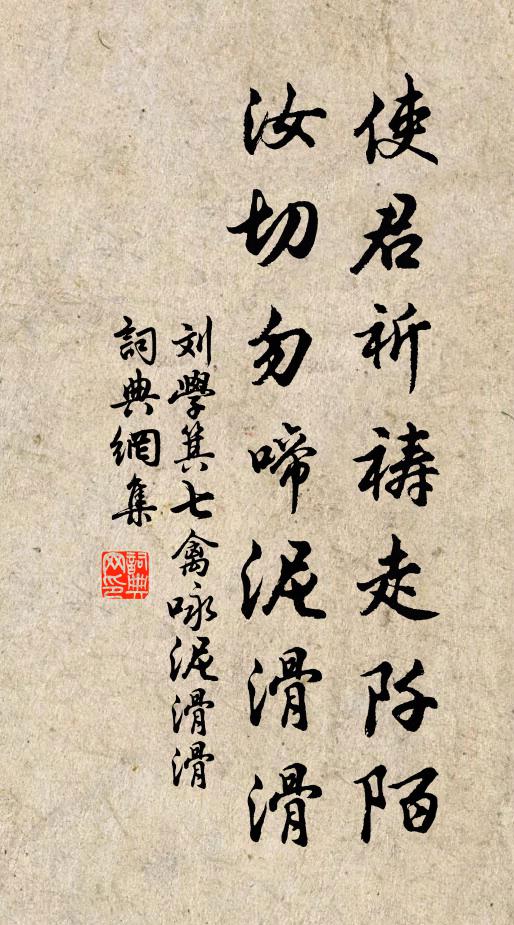 使君祈祷走阡陌
汝切勿啼泥滑滑
刘學箕七禽咏泥滑滑
詞典網集
詞典网印